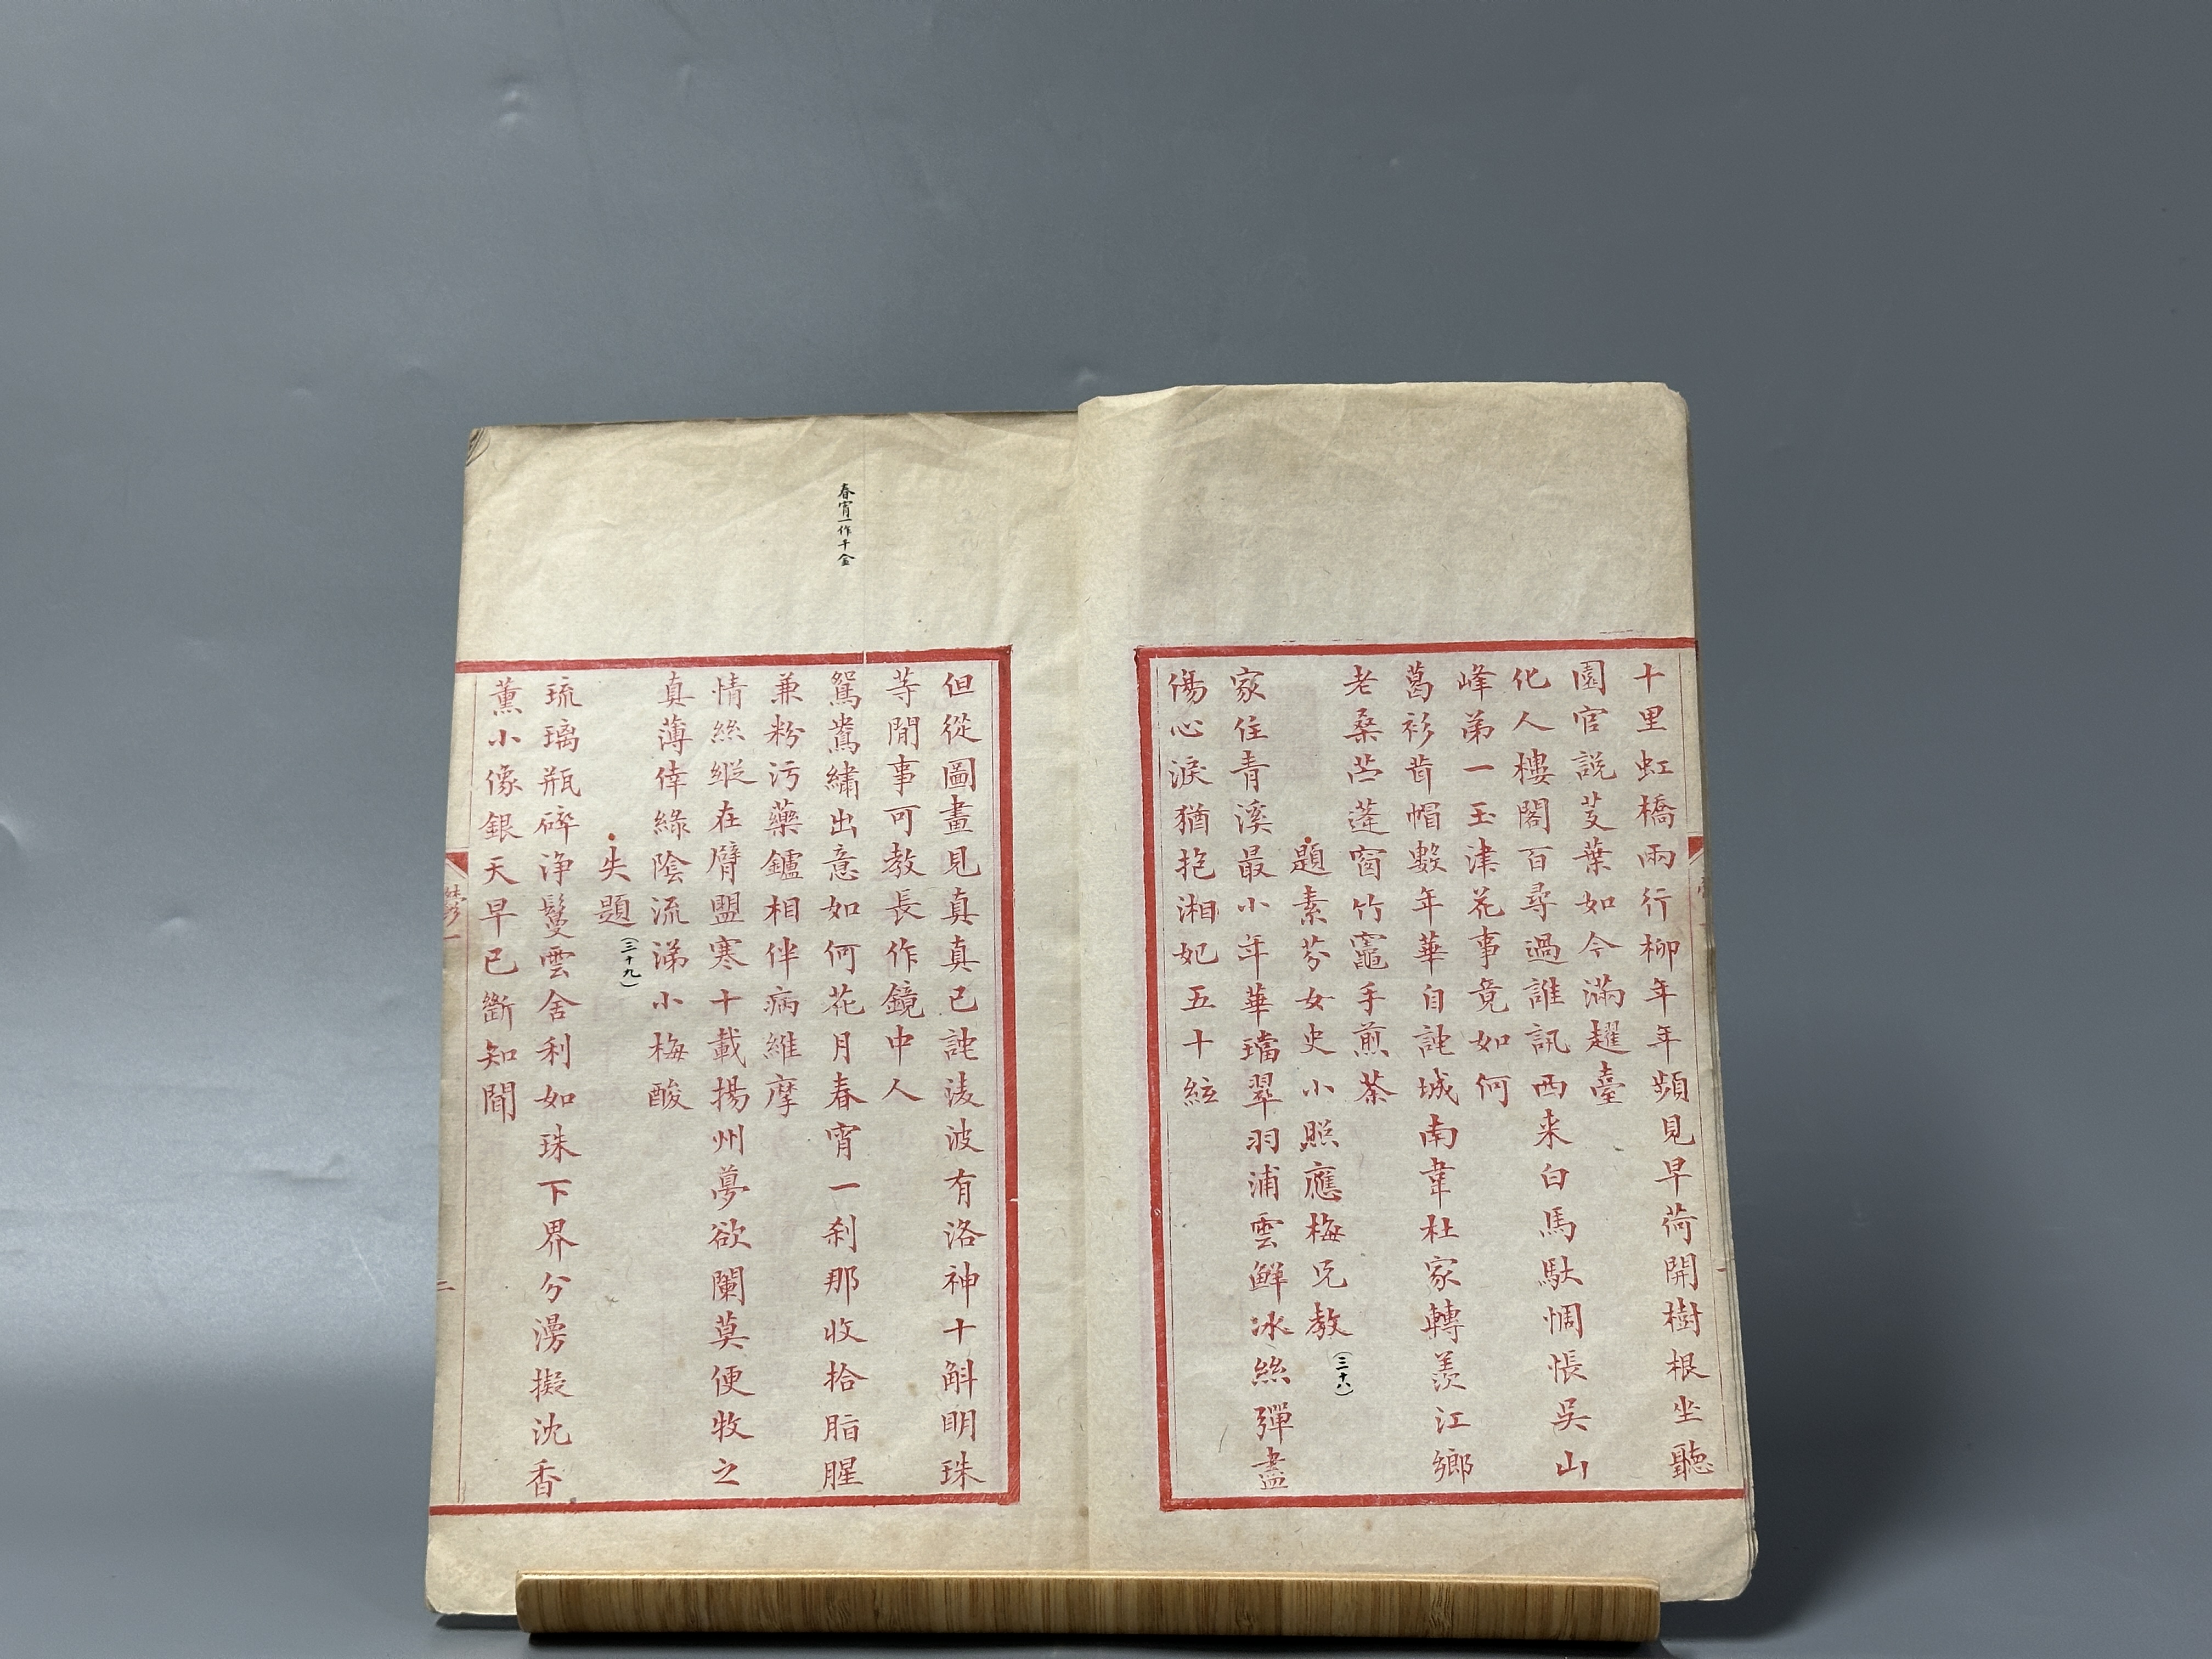 十里虹橋兩行柳年年蘋見早荷開樹根坐聽
園官說芰葉如今滿趯臺
化人樓閣百尋過誰訊西來白馬馱惆悵吳山
峰弟一玉津花事竟如何
葛衫昔帽數年華自詑城南韋杜家轉羨江鄉
老桑苎蓬窗竹竈手煎茶
題素芬女史小照應梅兄教
(三十八)
家住青溪最小年華璫翠羽浦雲鮮冰絲彈盡
傷心淚猶抱湘妃五十絃
春宵一作千金
但從圖畫見真真已詑淩波有洛神十斛明珠
等閒事可教長作鏡中人
鴛鴦繡出意如何花月春宵一刹那收拾脂腥
兼粉污藥鑪相伴病維摩
情絲縱在臂盟寒十載揚州夢欲闌莫便牧之
真薄倖綠陰流涕小梅酸
失題
(三十九)
琉璃瓶碎淨鬘雲舍利如珠下界分漫擬沈香
薰小像銀天早已斷知聞
二